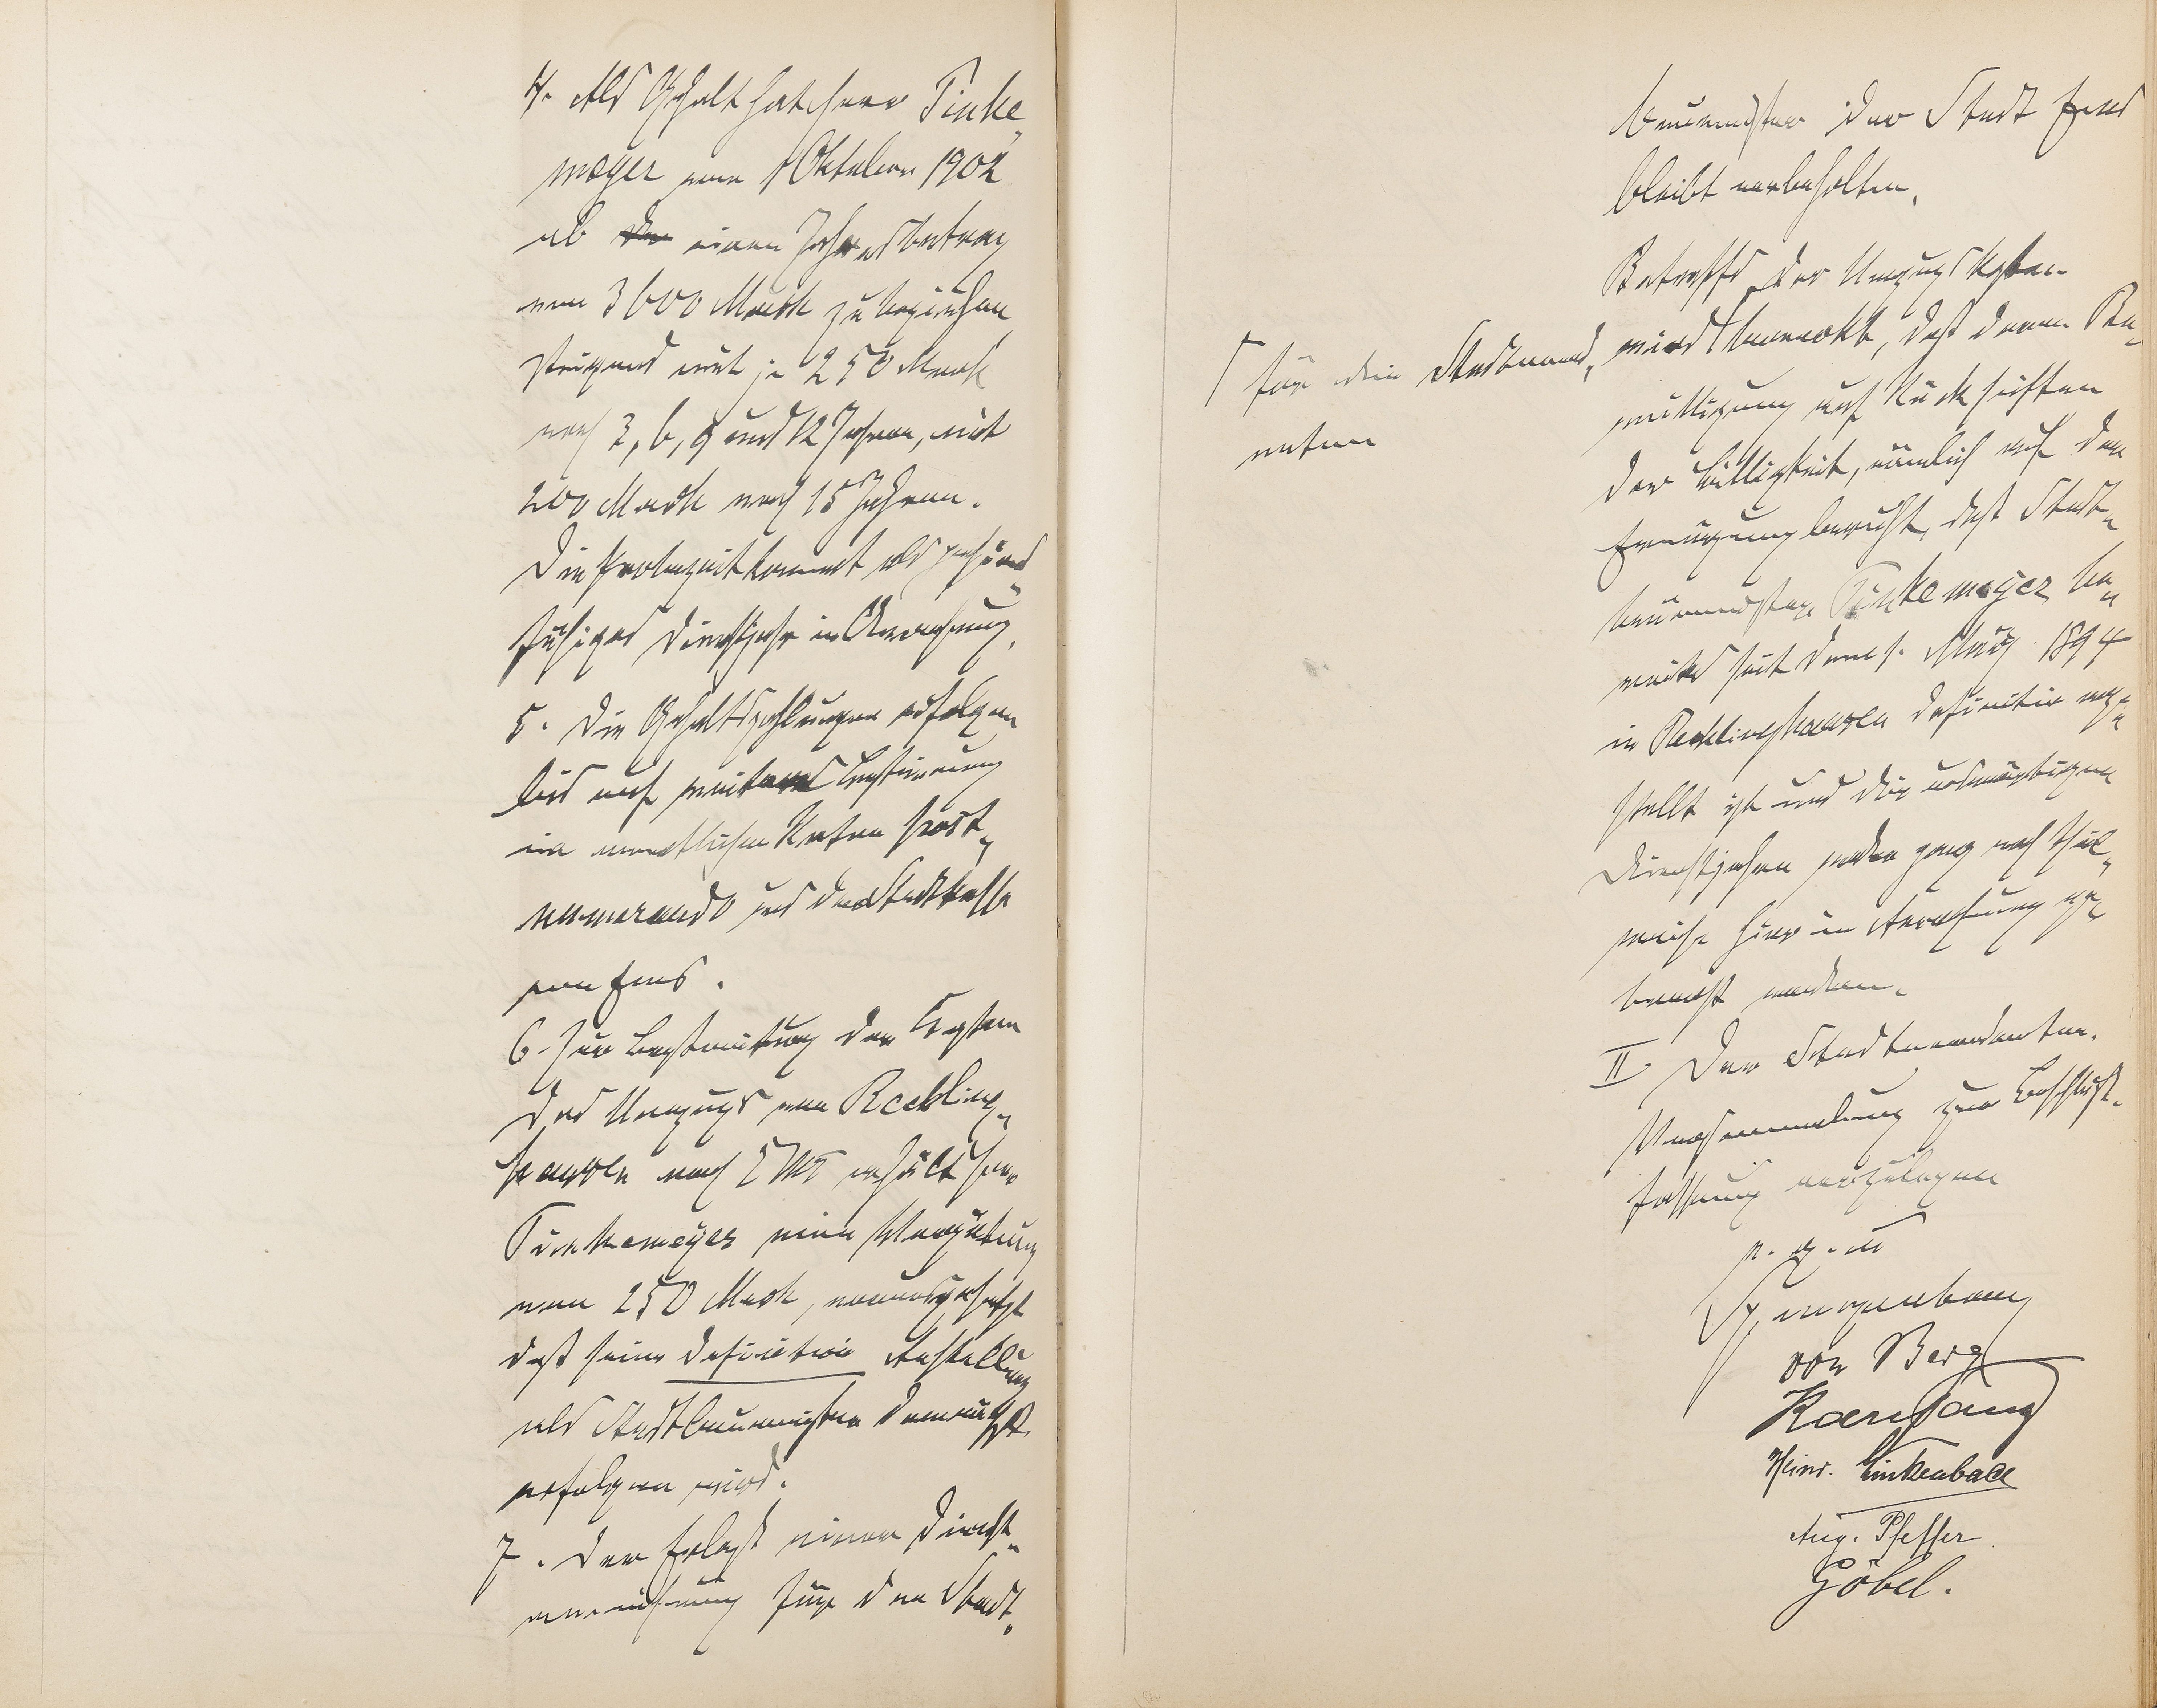 4. Als Gehalt hat Herr Finke„
meyer vom 1 Oktober 1902
ab den einen Jahresbetrag
von 3600 Mark zu beziehen
steigend mit je 250 Mark
nach 3, 6, 9 und 12 Jahren, mit
200 Mark nach 15 Jahren.
Die Probezeit kommt als pensions„
fähiges Dienstjahr in Anrechnung.
5. Die Gehaltszahlungen erfolgen
bis auf weitere Bestimmung
in monatlichen Raten post„
numerando aus der Stadtkasse
von Ems.
6. Zur Bestreitung der Kosten
des Umzugs von Reckling„
hausen nach Ems erhält Herr
Finkemeyer eine Vergütung
von 250 Mark, vorausgesetzt
daß seine definitive Anstellung
als Stadtbaumeister demnächst
erfolgen wird.
7. Der Erlaß einer Dienst„
anweisung für den Stadt„
baumeister der Stadt Ems
bleibt vorbehalten.
Betreffs der Umzugskosten
wird bemerkt, daß deren Be„
willigung auf Rücksichten
der Billigkeit, nämlich auf der
Erwägung beruht, daß Stadt„
baumeister Finkemeyer be„
reits seit dem 1. März 1894
in Recklinghausen definitiv ange„
stellt ist und die auswärtigen
Dienstjahre weder ganz noch theil„
weise hier in Anrechnung ge„
bracht werden.
⌈ für die Stadtverord„
neten
II. Der Stadtverordneten-
Versammlung zur Beschluß-
fassung vorzulegen
v. g. u.
von Berg
Heinr. Linkenbach
Aug. Pfeffer
Göbel.